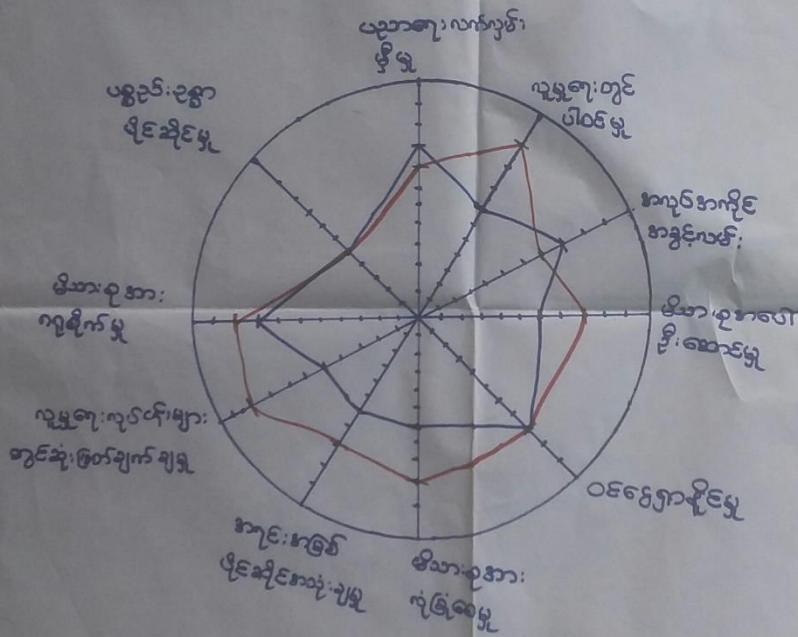 ပညာရေးလက်လှမ်း
မှီမှု
လူမှုရေးတွင်
ပါဝင်မှု
အလုပ်အကိုင်
အခွင့်လမ်း
မိသားစုအပေါ်
ဦးဆောင်မှု
ဝင်ငွေရှာနိုင်မှု
မိသားစုအား
လုံခြုံစေမှု
အရင်းအမြစ်
ပိုင်ဆိုင်အသုံးချမှု
လူမှုရေးလုပ်ငန်းများ
တွင်ဆုံးဖြတ်ချက်ချမှု
မိသားစုအား
ဂရုစိုက်မှု
ပစ္စည်းဥစ္စာ
ပိုင်ဆိုင်မှု